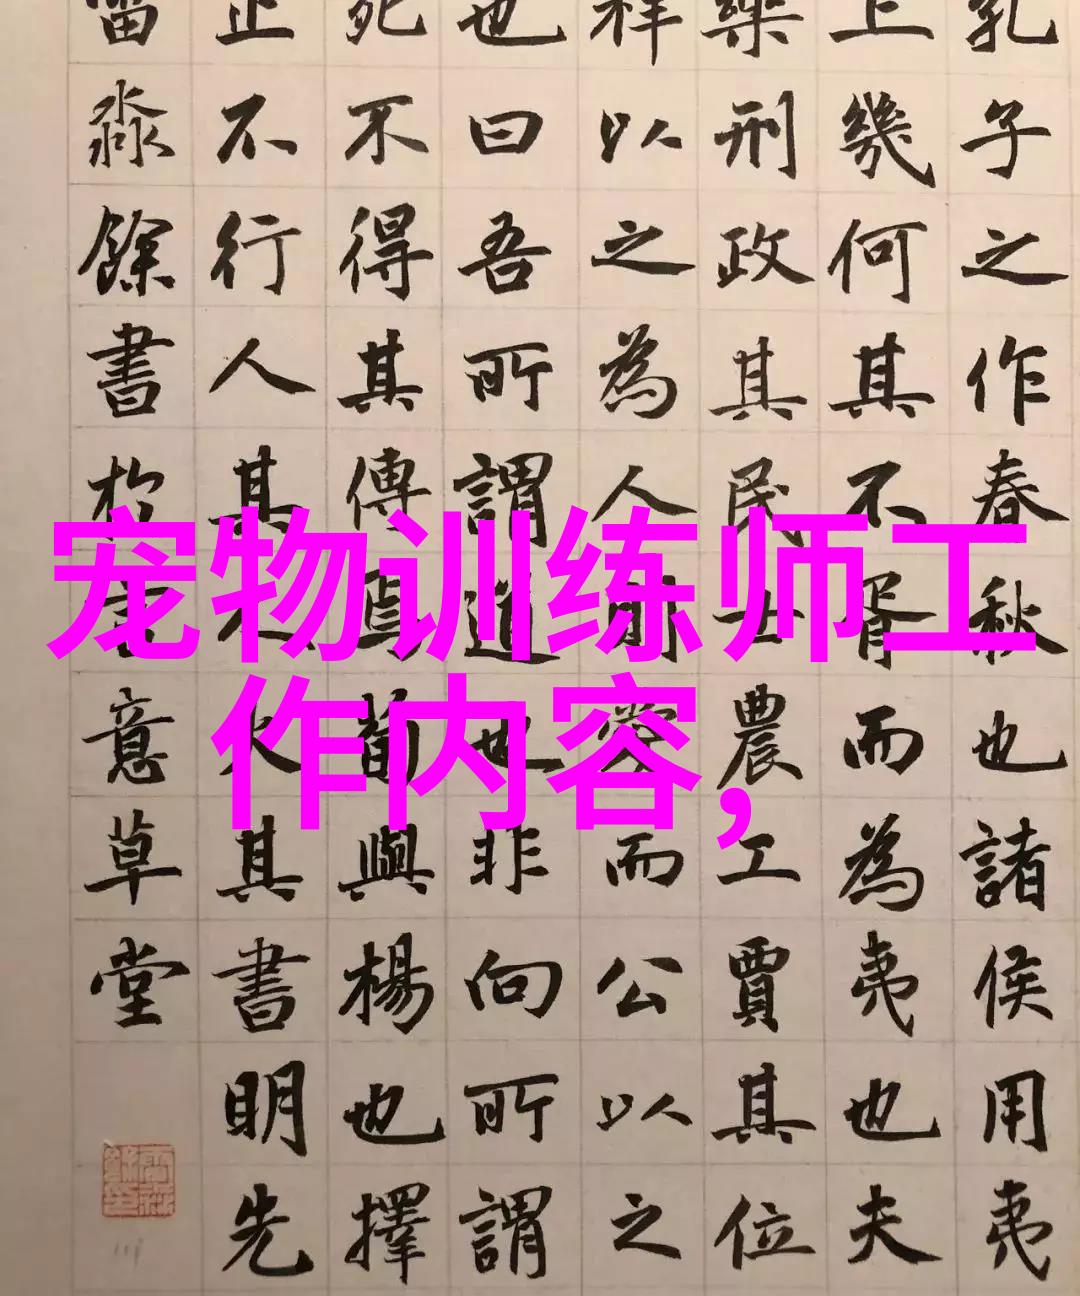 宠物训练师工
作内容，
孔子之作春秋也諸侯用夷
上幾何其不胥而為夷也夫
樂刑政其民士農工賈其位
祥以之為人則愛而公以之
也曰吾所謂道也非向所謂
死不得其傳焉荀與楊也擇
止不行人其人火其書明先
淼餘書於意草堂